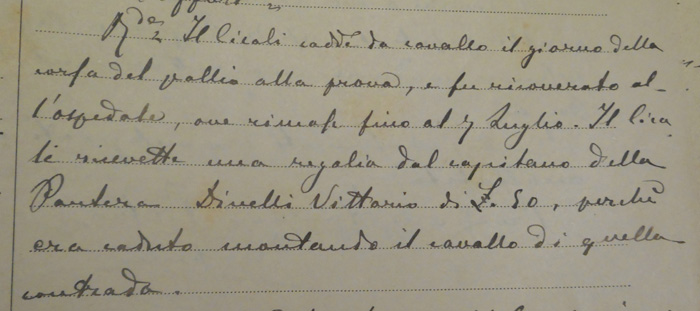 R.de 2 Il Cicali cadde da cavallo il giorno della
corsa del pallio alla prova, e fu ricoverato al-
l'ospedale, ove rimase fino al 7 Luglio. Il Cica
li ricevette una regalia dal capitano della
Pantera Dinelli Vittorio di £. 50, perchè
era caduto montando il cavallo di quella
contrada.